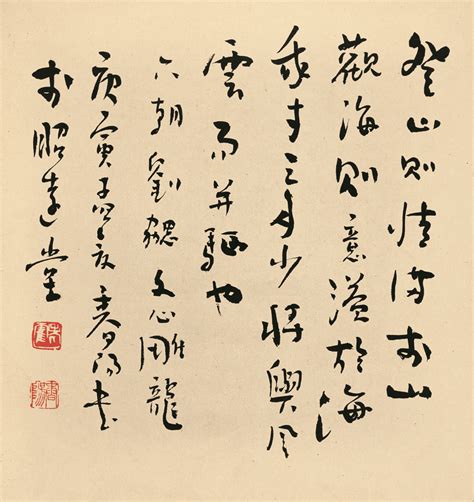 登山則情滿於山
觀海則意溢於海
我才之多少將與風
雲而并驅也
六朝劉勰文心雕龍
庚寅陽書
於昭堂